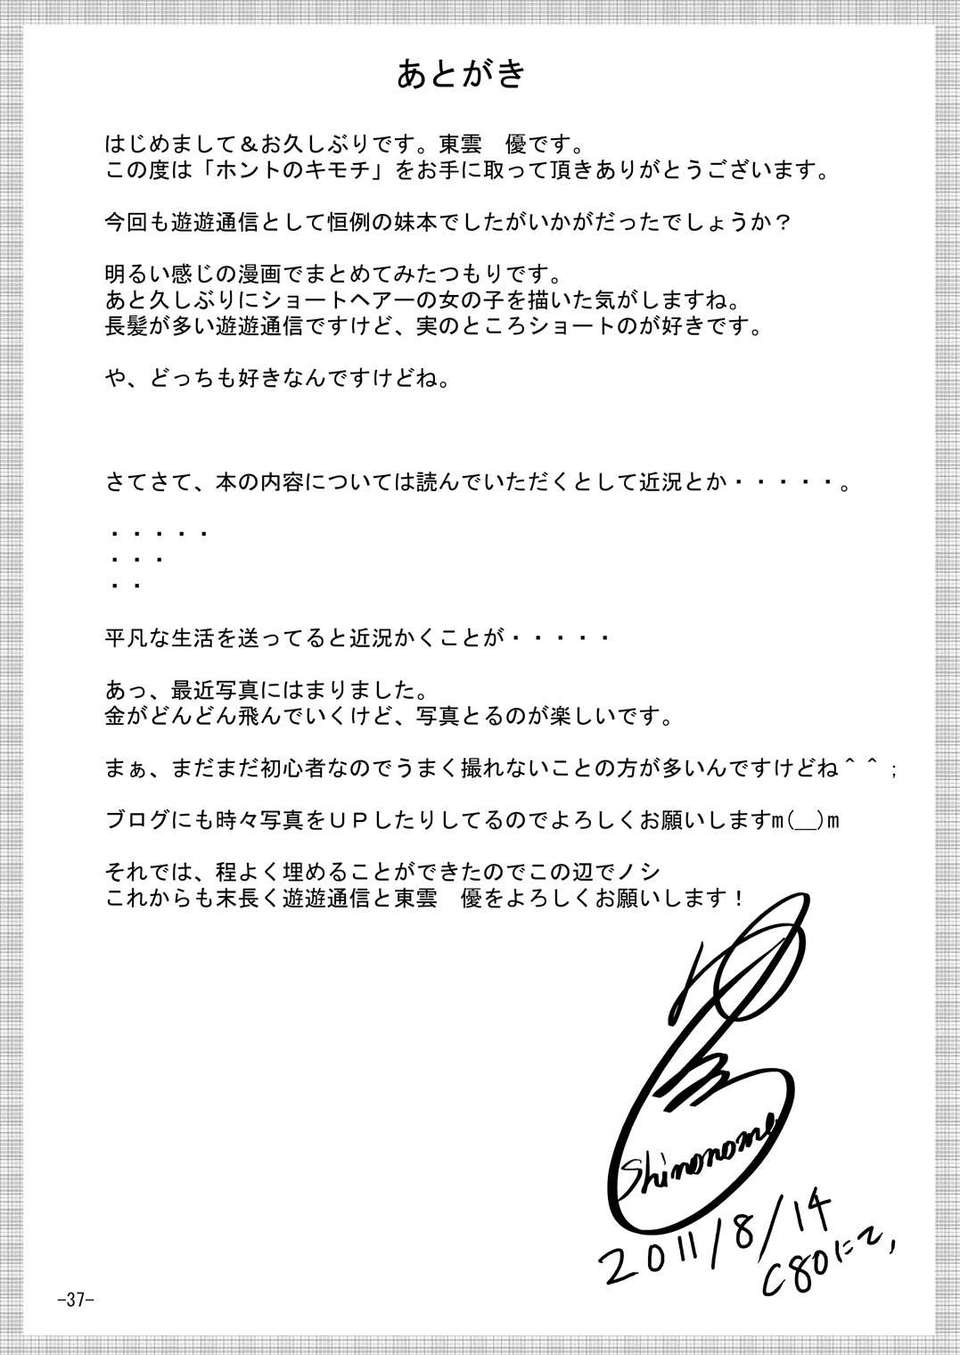 あとがき
はじめまして＆お久しぶりです。東雲　優です。
この度は「ホントのキモチ」をお手に取って頂きありがとうございます。
今回も遊遊通信として恒例の妹本でしたがいかがだったでしょうか？
明るい感じの漫画でまとめてみたつもりです。
あと久しぶりにショートヘアーの女の子を描いた気がしますね。
長髪が多い遊遊通信ですけど、実のところショートのが好きです。
や、どっちも好きなんですけどね。
さてさて、本の内容については読んでいただくとして近況とか・・・・・。
・・・・・
・・・
・・
平凡な生活を送ってると近況かくことが・・・・・
あっ、最近写真にはまりました。
金がどんどん飛んでいくけど、写真とるのが楽しいです。
まぁ、まだまだ初心者なのでうまく撮れないことの方が多いんですけどね＾＾；
ブログにも時々写真をＵＰしたりしてるのでよろしくお願いしますm(__)m
それでは、程よく埋めることができたのでこの辺でノシ
これからも末長く遊遊通信と東雲　優をよろしくお願いします！
Shinonome
2011/8/14
C80にて,
-37-